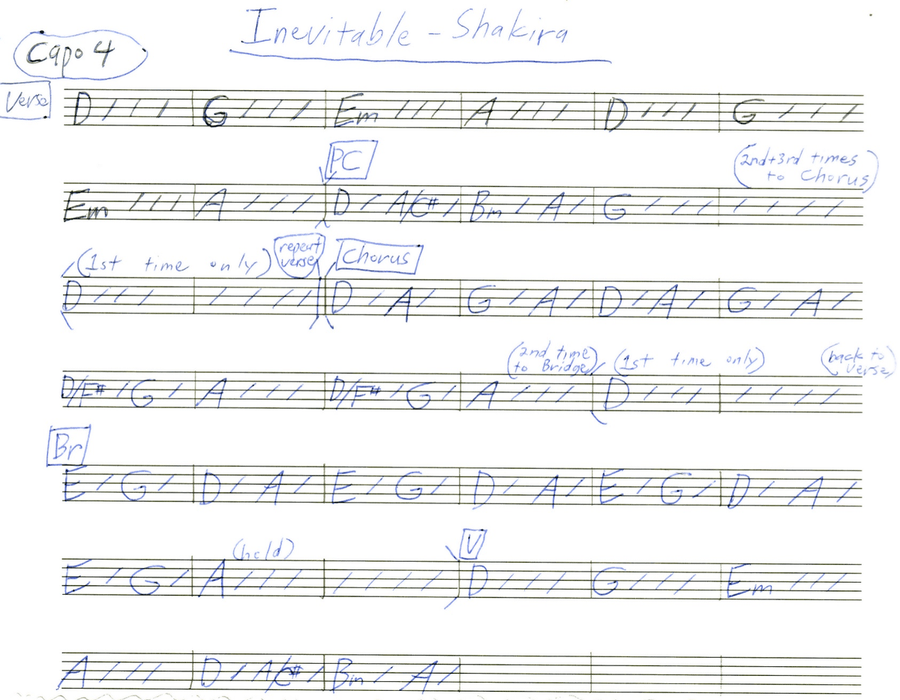 Inevitable - Shakira
Capo 4
Verse
D / / / G / / / Em / / / A / / / D / / / G / / / /
PC
(2nd+3rd times to Chorus)
Em / / / A / / / / D / A/C# / Bm / A / G / / / / / / /
(1st time only) repeat verse Chorus
D / / / / / / / D / A / G / A / D / A / G / A /
(2nd time to Bridge) (1st time only) (back to verse)
D/F# / G / A / / / D/F# / G / A / / / D / / / / / / /
Br
E / G / D / A / E / G / D / A / E / G / D / A /
(hold) V
E / G / A / / / / / / / D / / / G / / / Em / / /
A / / / D / A/C# / Bm / A /